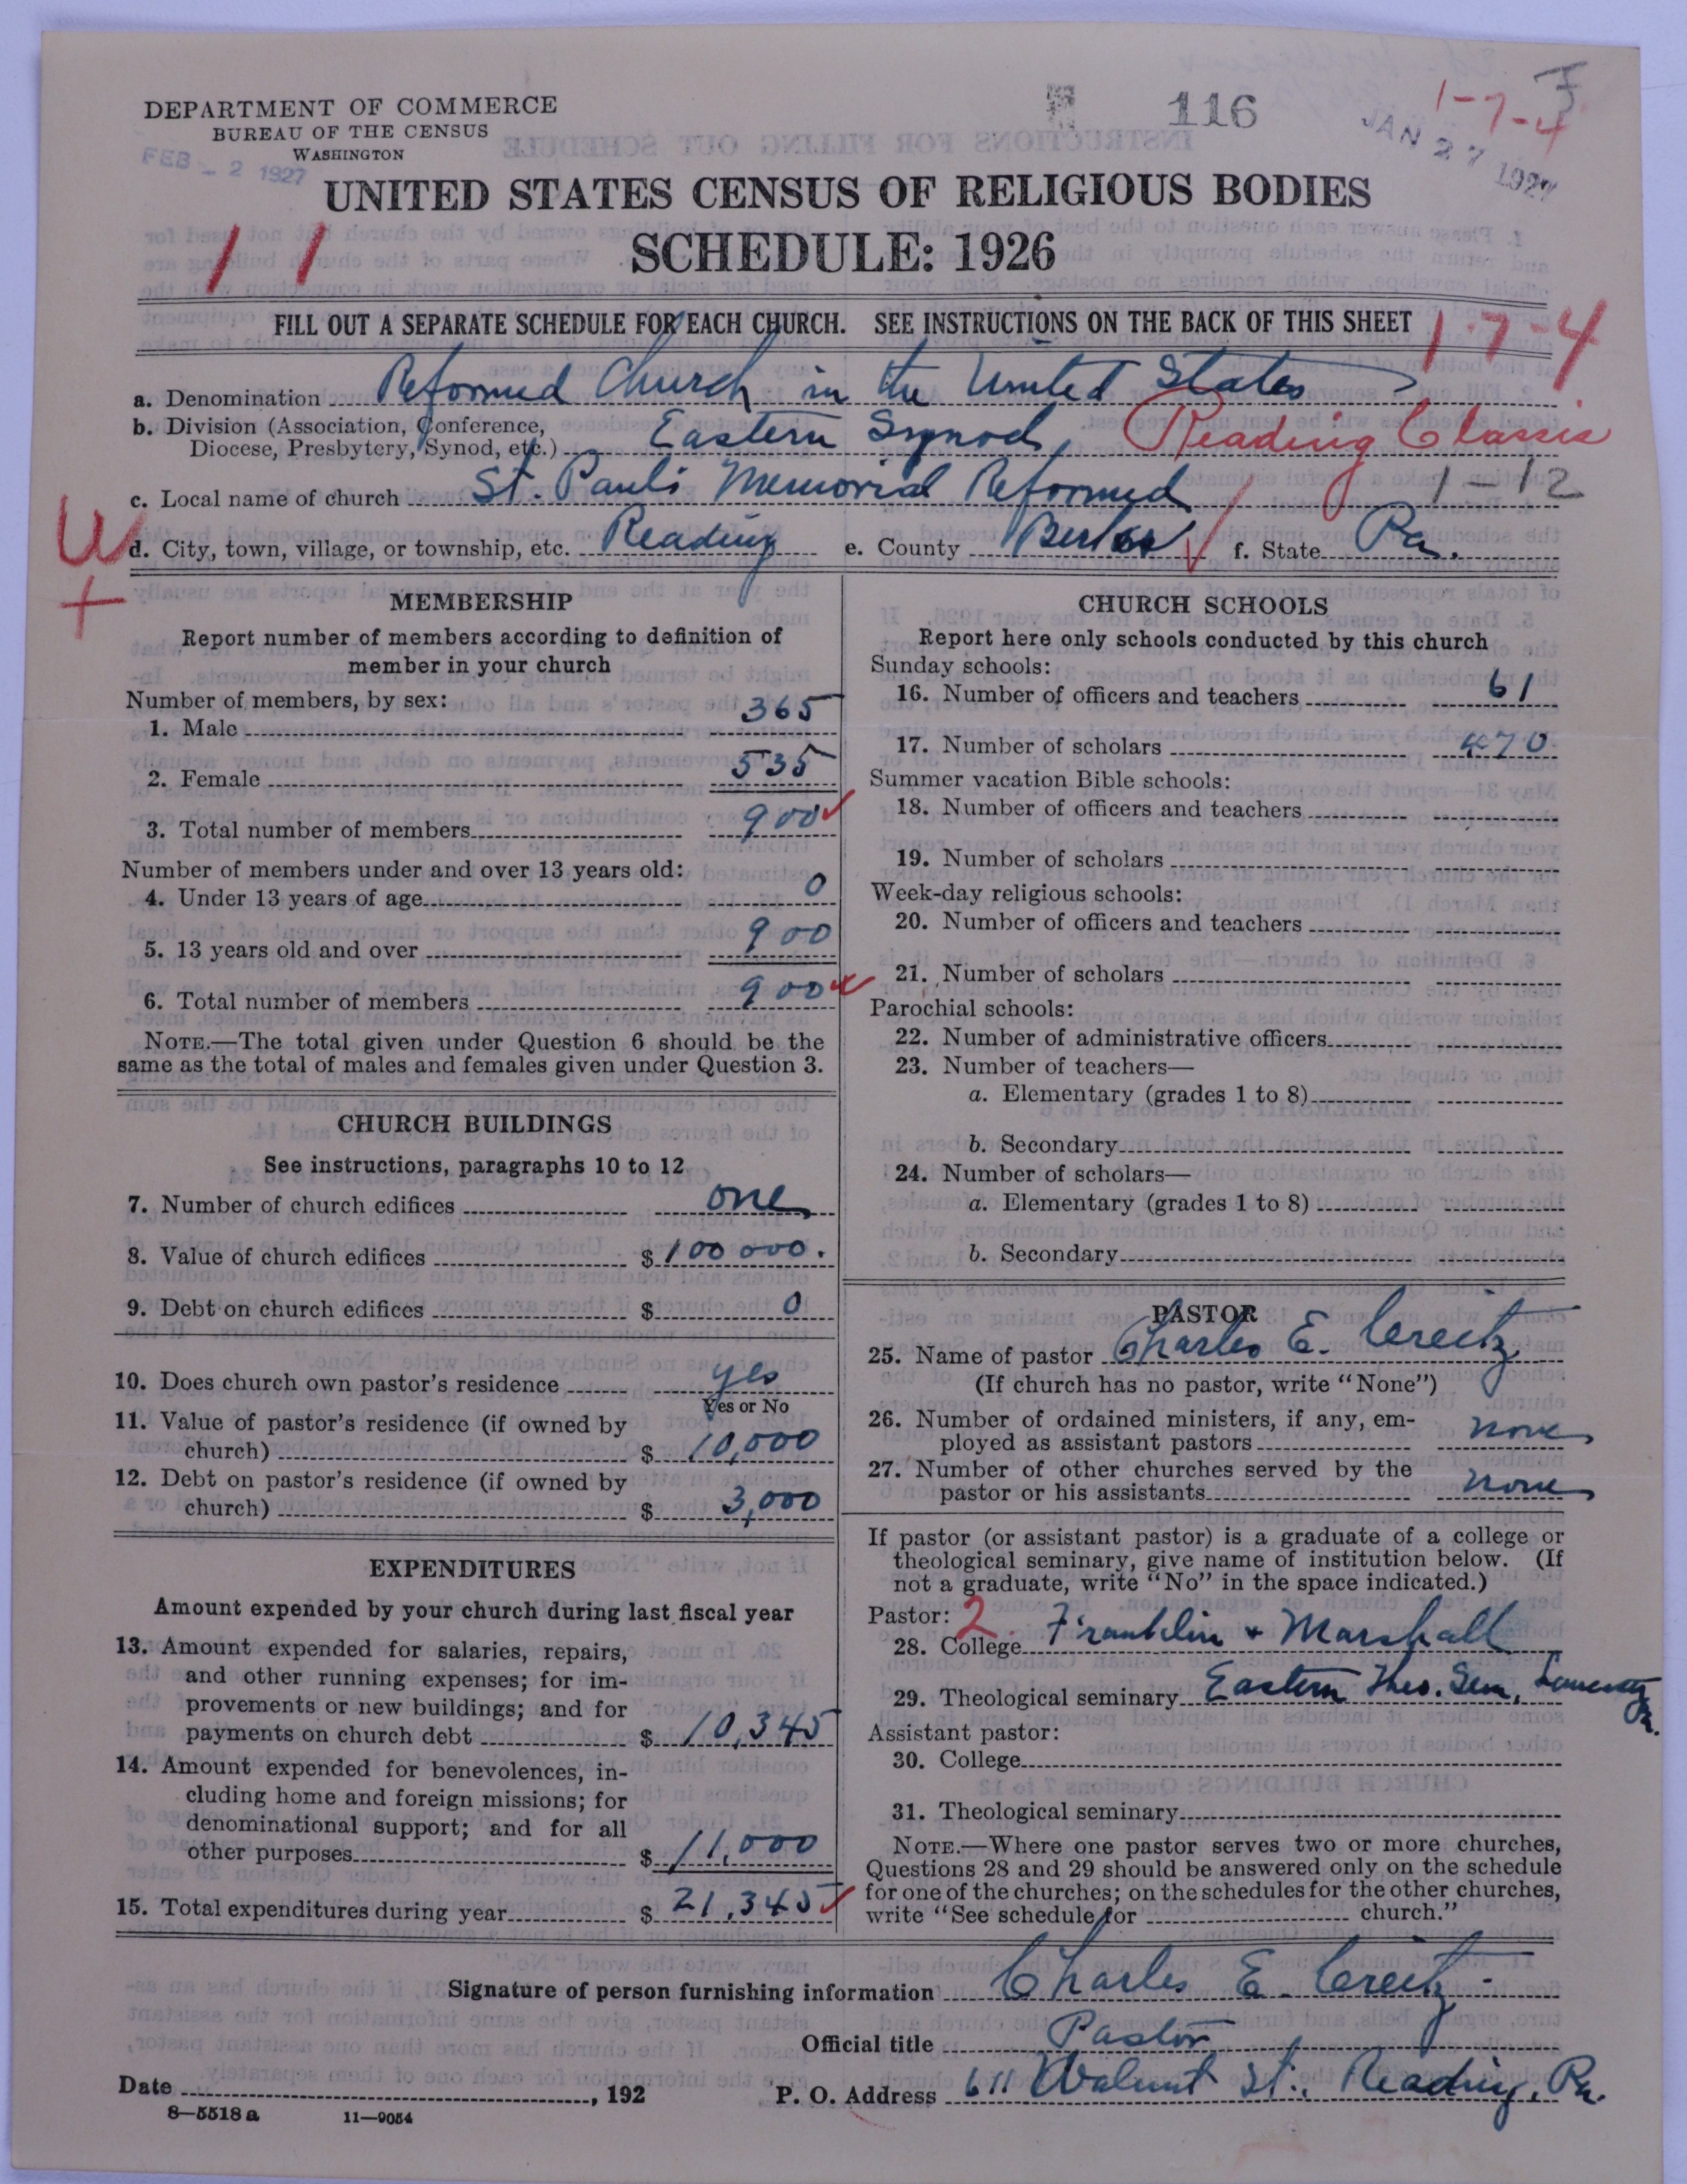 DEPARTMENT OF COMMERCE
BUREAU OF THE CENSUS
WASHINGTON
FEB - 2 1927
116
1-7-4
JAN 27 1927
UNITED STATES CENSUS OF RELIGIOUS BODIES
SCHEDULE: 1926
1 1
FILL OUT A SEPARATE SCHEDULE FOR EACH CHURCH. SEE INSTRUCTIONS ON THE BACK OF THIS SHEET
1-7-4
a. Denomination Reformed Church in the United States
b. Division (Association, Conference,
Diocese, Presbytery, Synod, etc.) Eastern Synod, Reading Classis
c. Local name of church St. Paul's Memorial Reformed
1-12
d. City, town, village, or township, etc. Reading e. County Berks f. State Pa.
MEMBERSHIP
Report number of members according to definition of
member in your church
Number of members, by sex:
1. Male 365
2. Female 535
3. Total number of members 900
Number of members under and over 13 years old:
4. Under 13 years of age 0
5. 13 years old and over 900
6. Total number of members 900
NOTE.—The total given under Question 6 should be the
same as the total of males and females given under Question 3.
CHURCH BUILDINGS
See instructions, paragraphs 10 to 12
7. Number of church edifices one
8. Value of church edifices $ 100 000.
9. Debt on church edifices $ 0
10. Does church own pastor's residence yes
Yes or No
11. Value of pastor's residence (if owned by
church) $ 10,000
12. Debt on pastor's residence (if owned by
church) $ 3,000
EXPENDITURES
Amount expended by your church during last fiscal year
13. Amount expended for salaries, repairs,
and other running expenses; for im-
provements or new buildings; and for
payments on church debt $ 10,345
14. Amount expended for benevolences, in-
cluding home and foreign missions; for
denominational support; and for all
other purposes $ 11,000
15. Total expenditures during year $ 21,345
CHURCH SCHOOLS
Report here only schools conducted by this church
Sunday schools:
16. Number of officers and teachers 61
17. Number of scholars 470
Summer vacation Bible schools:
18. Number of officers and teachers
19. Number of scholars
Week-day religious schools:
20. Number of officers and teachers
21. Number of scholars
Parochial schools:
22. Number of administrative officers
23. Number of teachers—
a. Elementary (grades 1 to 8)
b. Secondary
24. Number of scholars—
a. Elementary (grades 1 to 8)
b. Secondary
PASTOR
25. Name of pastor Charles E. Creitz
(If church has no pastor, write "None")
26. Number of ordained ministers, if any, em-
ployed as assistant pastors none
27. Number of other churches served by the
pastor or his assistants none
If pastor (or assistant pastor) is a graduate of a college or
theological seminary, give name of institution below. (If
not a graduate, write "No" in the space indicated.)
Pastor: 2
28. College Franklin + Marshall
29. Theological seminary Eastern Theo. Sem, Pa.
Assistant pastor:
30. College
31. Theological seminary
NOTE.—Where one pastor serves two or more churches,
Questions 28 and 29 should be answered only on the schedule
for one of the churches; on the schedules for the other churches,
write "See schedule for church."
Signature of person furnishing information Charles E. Creitz
Official title Pastor
Date , 192 P. O. Address 611 Walnut St., Reading, Pa.
8—5518 a 11—9054